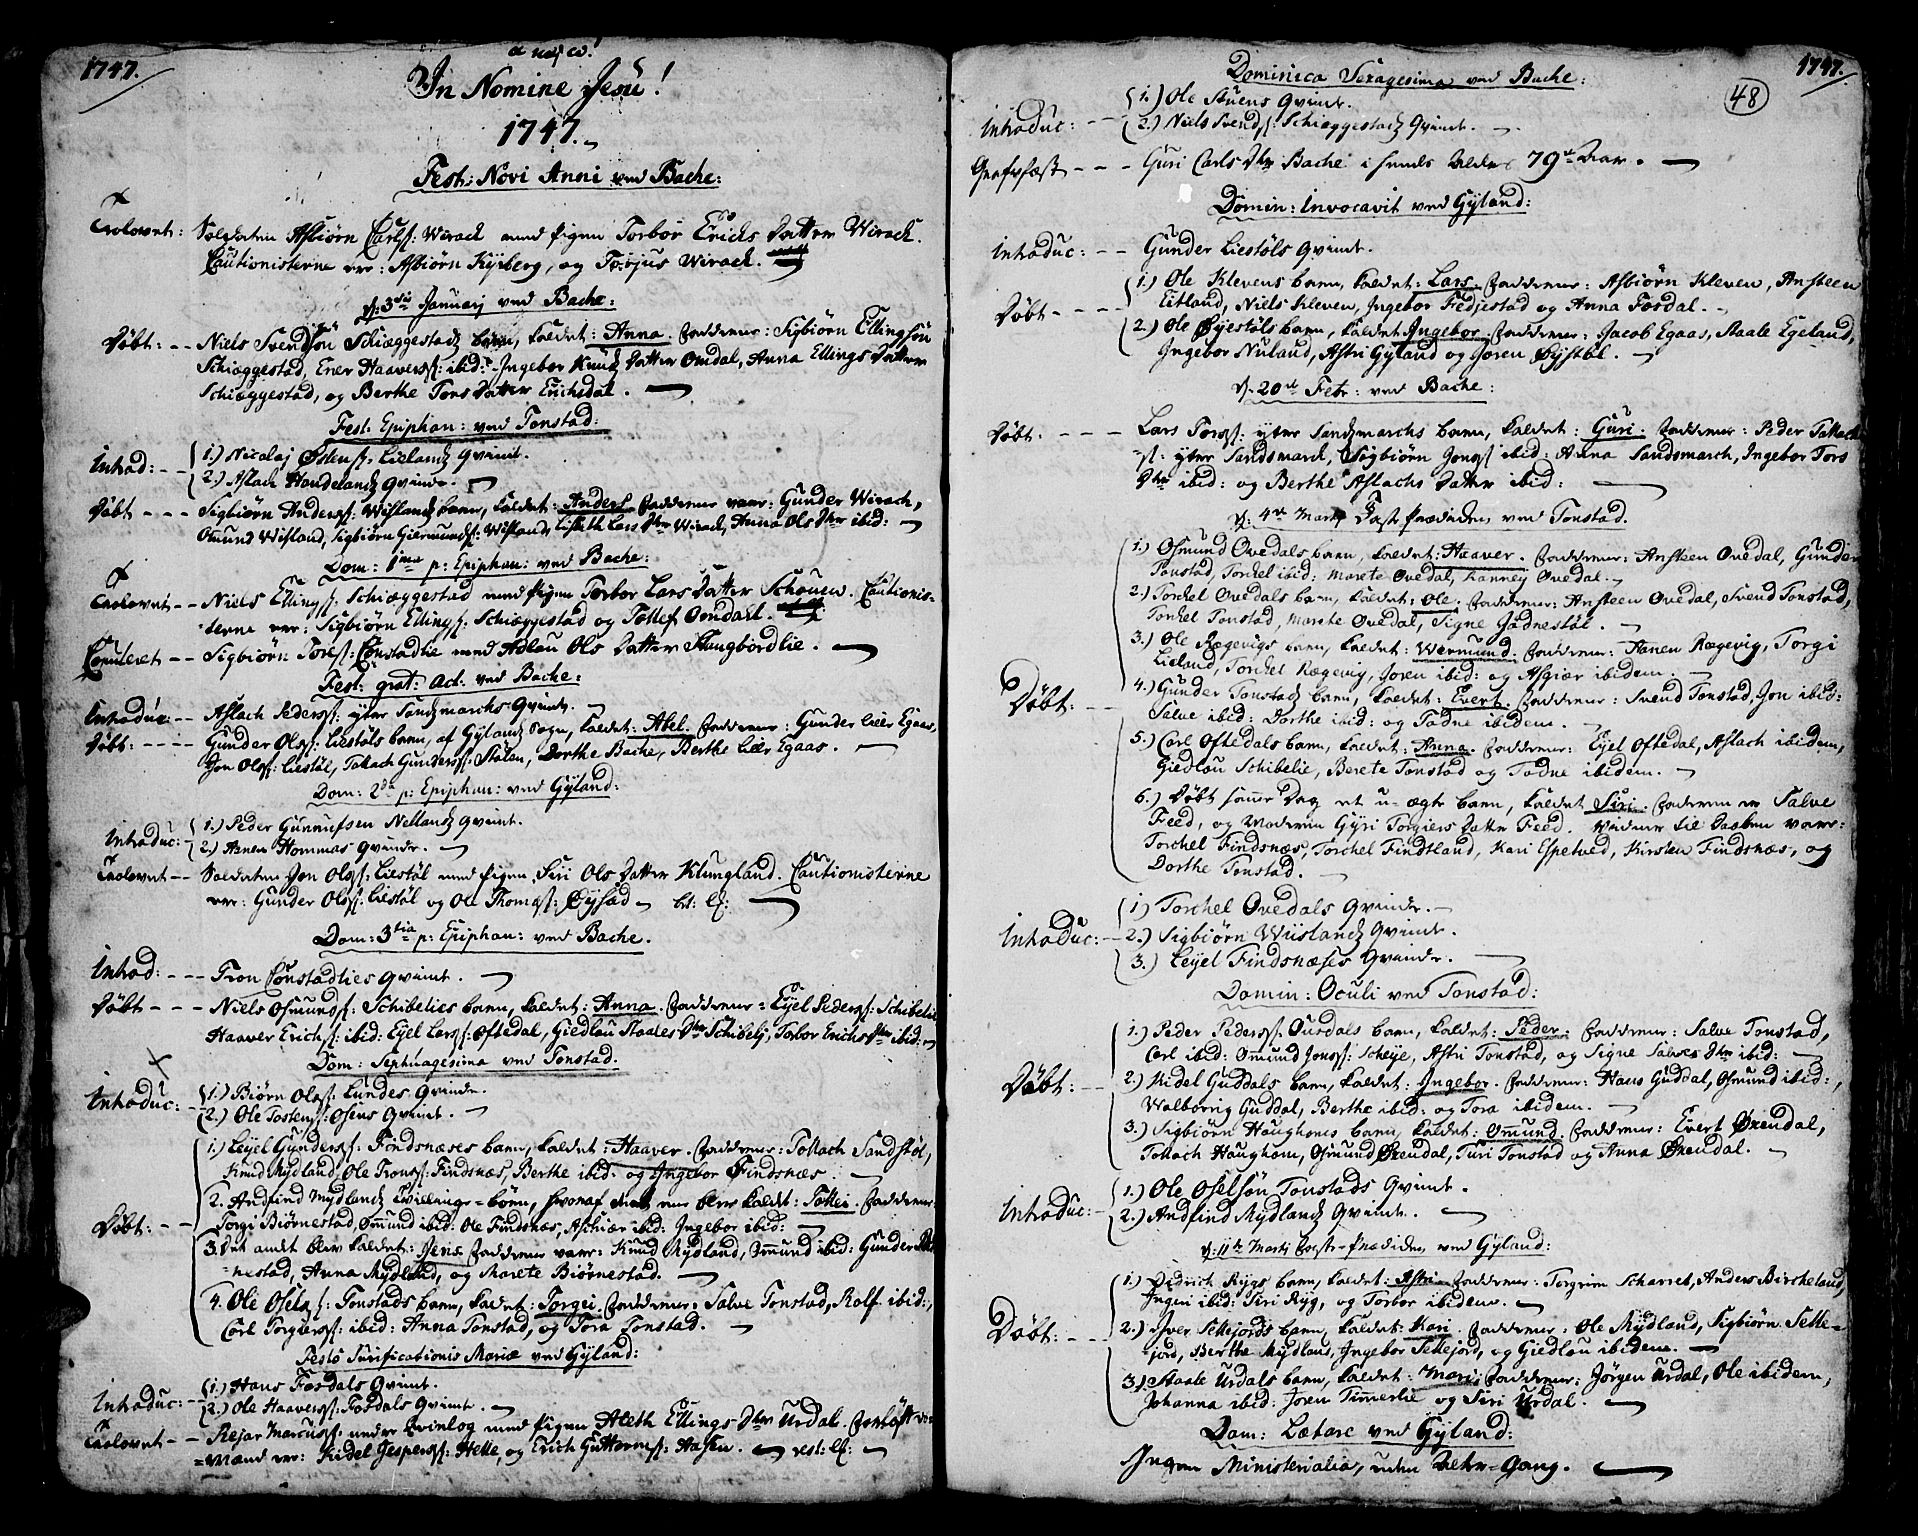 1747.
In Nomine Jesu!
1747.
Fest: Novi Anni ved Bache:
Trolovet: Soldaten Asbiørn Carls: Wirach med Pigen Torbor Erichs Datter Wirach.
Cautionisterne er: Asbiørn Kyrberg, og Torjus Wirach.
d: 3die Januarj ved Bache:
Døbt: -- Niels Svendsøn Schiæggestads barn, kaldet: Anna. Fadderne: Sigbiørn Ellingsøn
Schiæggestad, Ener Haavers: ibid: Ingebor Knuds Datter Omdal, Anna Ellings Datter
Schiæggestad, og Berthe Tons Datter Erichsdal.
Fest: Epiphan: ved Tonstad:
Introd: -- 1.) Nicolaj Østens: Lielands Qvinde.
2.) Aslach Handelands Qvinde.
Døbt --- Sigbiørn Anders: Wislands barn, kaldet: Anders. Fadderne vare: Gunder Wirach,
Omund Wisland, Sigbiørn Giermunds: Wisland, Lisbeth Lars Dtr Wirach, Anna Ols Dtr ibid:
Dom: 1ma p: Epiphan: ved Bache:
Trolovet -- Niels Ellings: Schiæggestad med Pigen Torbor Lars Datter Schouen. Cautionis-
terne er: Sigbiørn Ellings: Schiæggestad og Tollef Omdal.
Copuleret -- Sigbiørn Tores: Lonstadlie med Adlau Ols Datter Haugbordlie.
Fest: grat: Act: ved Bache:
Introduc -- Aslach Peders: yter Sandsmarchs Qvinde.
Døbt: ---- Gunder Ols: Liestøls barn, af Gylands Sogn, kaldet: Abel. Fadderne: Gunder lille Egaas,
Jon Ols: Liestøl, Tallach Gunders: Stølen, Dorthe Bache, Berthe Lille Egaas.
Dom: 2da p: Epiphan: ved Gyland:
Introduc: 1.) Peder Gunnufsen Nellands Qvinde.
2.) Asnen Hommas Qvinde.
Trolovet -- Soldaten Jon Ols: Liestøl med Pigen Siri Ols Datter Klungland. Cautionisterne
er: Gunder Ols: Liestøl og Ole Thomas: Øysad
Dom: 3tia p: Epiphan: ved Bache.
Introd: --- Tron Lonstadlies Qvinde.
Døbt --- Niels Osmunds: Schibelies barn, kaldet: Anna. Fadderne: Eyel Peders: Schibelie
Haaver Erichs: ibid: Eyel Lars: Oftedal, Giedlau Staales Dtr Schibelj, Torbor Erichs Dtr ibid:
Dom: Septuagesima ved Tonstad.
Introduc: 1.) Biørn Ols: Lundes Qvinde.
2.) Ole Tostens: Osens Qvinde.
1.) Leyel Gunders: Findsnæses barn, kaldet: Haaver. Fadderne: Tallach Sandstøl,
Knud Mydland, Ole Trons: Findsnæs, Berthe ibid: og Ingebor Findsnæs
2. Andfind Mydlands Tvillinge-børn, hvoraf det ene blev kaldet: Tollei. Fadderne:
Døbt: -- Torgi Biørnestad, Omund ibid: Ole Findsnæs, Aschiær ibid: Ingebor ibid:
3. Det andet blev kaldet: Jens. Fadderne vare: Knud Mydland, Omund ibid: Gunder Biør-
nestad, Anna Mydland, og Marete Biørnestad.
4. Ole Osels: Tonstads barn, kaldet: Torgei. Fadderne: Salve Tonstad, Rolf ibid:,
Carl Torgiers: ibid: Anna Tonstad, og Tora Tonstad.
Festo Purificationis Mariæ ved Gyland:
Introduc: 1.) Hans Fosdals Qvinde.
2.) Ole Haavers: Fosdals Qvinde.
Trolovet -- Rejar Marcus: under Qvinlog med Pigen Aleth Ellings Dtr Urdal. Forløft-
mænd er: Kidel Jespers: Helle, og Erich Guttorms: Aasen.
1747.
48
Dominica Sexagesima ved Bache:
Introduc: -- 1.) Ole Stuens Qvinde.
2.) Niels Svends: Schiæggestads Qvinde.
Grafæst --- Guri Carls Dtr Bache i hendes Alders 79de Aar.
Domin: Invocavit ved Gyland:
Introduc: -- Gunder Liestøls Qvinde.
1.) Ole Klevens barn, kaldet: Lars. Fadderne: Asbiørn Kleven, Ansteen
Døbt ---- Eitland, Niels Kleven, Ingebor Fedjestad og Anna Fosdal.
2.) Ole Øyestøls barn, kaldet Ingebor. Fadderne: Jacob Egaas, Staale Egeland,
Ingebor Nuland, Astri Gyland og Joren Øystøl.
d. 20de Febr: ved Bache:
Døbt. ---- Lars Tores: yter Sandsmarchs barn, kaldet: Guri. Fadderne: Peder Tallach
s: yter Sandsmarch, Sigbiørn Jons: ibid: Anna Sandsmarch, Ingebor Tors
Dtr ibid: og Berthe Aslachs Datter ibid:
d: 4de Martj Faste Prædicken, ved Tonstad.
1.) Osmund Ovedals barn, kaldet: Haaver. Fadderne: Ansteen Ovedal, Gunder
Tonstad, Torchel ibid: Marete Ovedal, Ranney Ovedal.
2.) Torchel Ovedals barn, kaldet: Ole. Fadderne: Ansteen Ovedal, Svend Tonstad,
Torchel Tonstad, Marete Ovedal, Signe Gudnestøl.
3.) Ole Rægevigs barn, kaldet: Wermund. Fadderne: Aanen Rægevig, Torgi
Lieland, Torchel Rægevig, Joren ibid: og Asgiær ibidem.
Døbt: -- 4.) Gunder Tonstads barn, kaldet: Evert. Fadderne: Svend Tonstad, Jon ibid:
Salve ibid: Dorthe ibid: og Todne ibidem.
5.) Carl Oftedals barn, kaldet: Anna. Fadderne: Eyel Oftedal, Aslach ibidem,
Giedlou Schibelie, Berete Tonstad og Todne ibidem.
6.) Døbt samme Dag et u-ægte barn, kaldet Siri. Faderen er Salve
Feed, og Moderen Gyri Torgiers Datter Feed. Vidner til Daaben vare:
Torchel Findsnæs, Torchel Findtland, Kari Espetved, Kirsten Findsnæs, og
Dorthe Tonstad.
1.) Torchel Ovedals Qvinde.
Introduc: -- 2.) Sigbiørn Wiislands Qvinde.
3.) Leyel Findsnæses Qvinde.
Domin: Oculi ved Tonstad:
1.) Peder Peders: Ousdals barn, kaldet: Peder: Fadderne: Salve Tonstad,
Carl ibid: Omund Jons: Scheye, Astri Tonstad, og Signe Salves Dtr ibid:
Døbt: -- 2.) Kidel Guddals barn, kaldet: Ingebor. Fadderne: Hans Guddal, Osmund ibid:,
Walborrig Guddal, Berthe ibid: og Tora ibidem.
3.) Sigbiørn Haughoms barn, kaldet: Omund. Fadderne: Evert Øxendal,
Tallach Haughom, Osmund Øxendal, Turi Tonstad og Anna Øxendal.
Introduc: -- 1.) Ole Oselsøn Tonstads Qvinde.
2.) Andfind Mydlands Qvinde.
d: 11te Martj Faste-Prædicken, ved Gyland:
1.) Didrich Rygs barn, kaldet: Astri. Fadderne: Torgrim Scharret, Anders Bircheland,
Ingeri ibid: Siri Ryg, og Torbor ibidem.
Døbt: --- 2.) Iver Sellejords barn, kaldet: Kari. Fadderne: Ole Mydland, Sigbiørn Selle-
jord, Berthe Mydland, Ingebor Sellejord, og Giedlau ibidem.
3.) Staale Urdals barn, kaldet: Mari. Fadderne: Jørgen Urdal, Ole ibidem,
Johanna ibid: Joren Timmerlie og Siri Urdal.
Dom: Lætare ved Gyland:
Ingen Ministerialia, uden Alter-Gang.